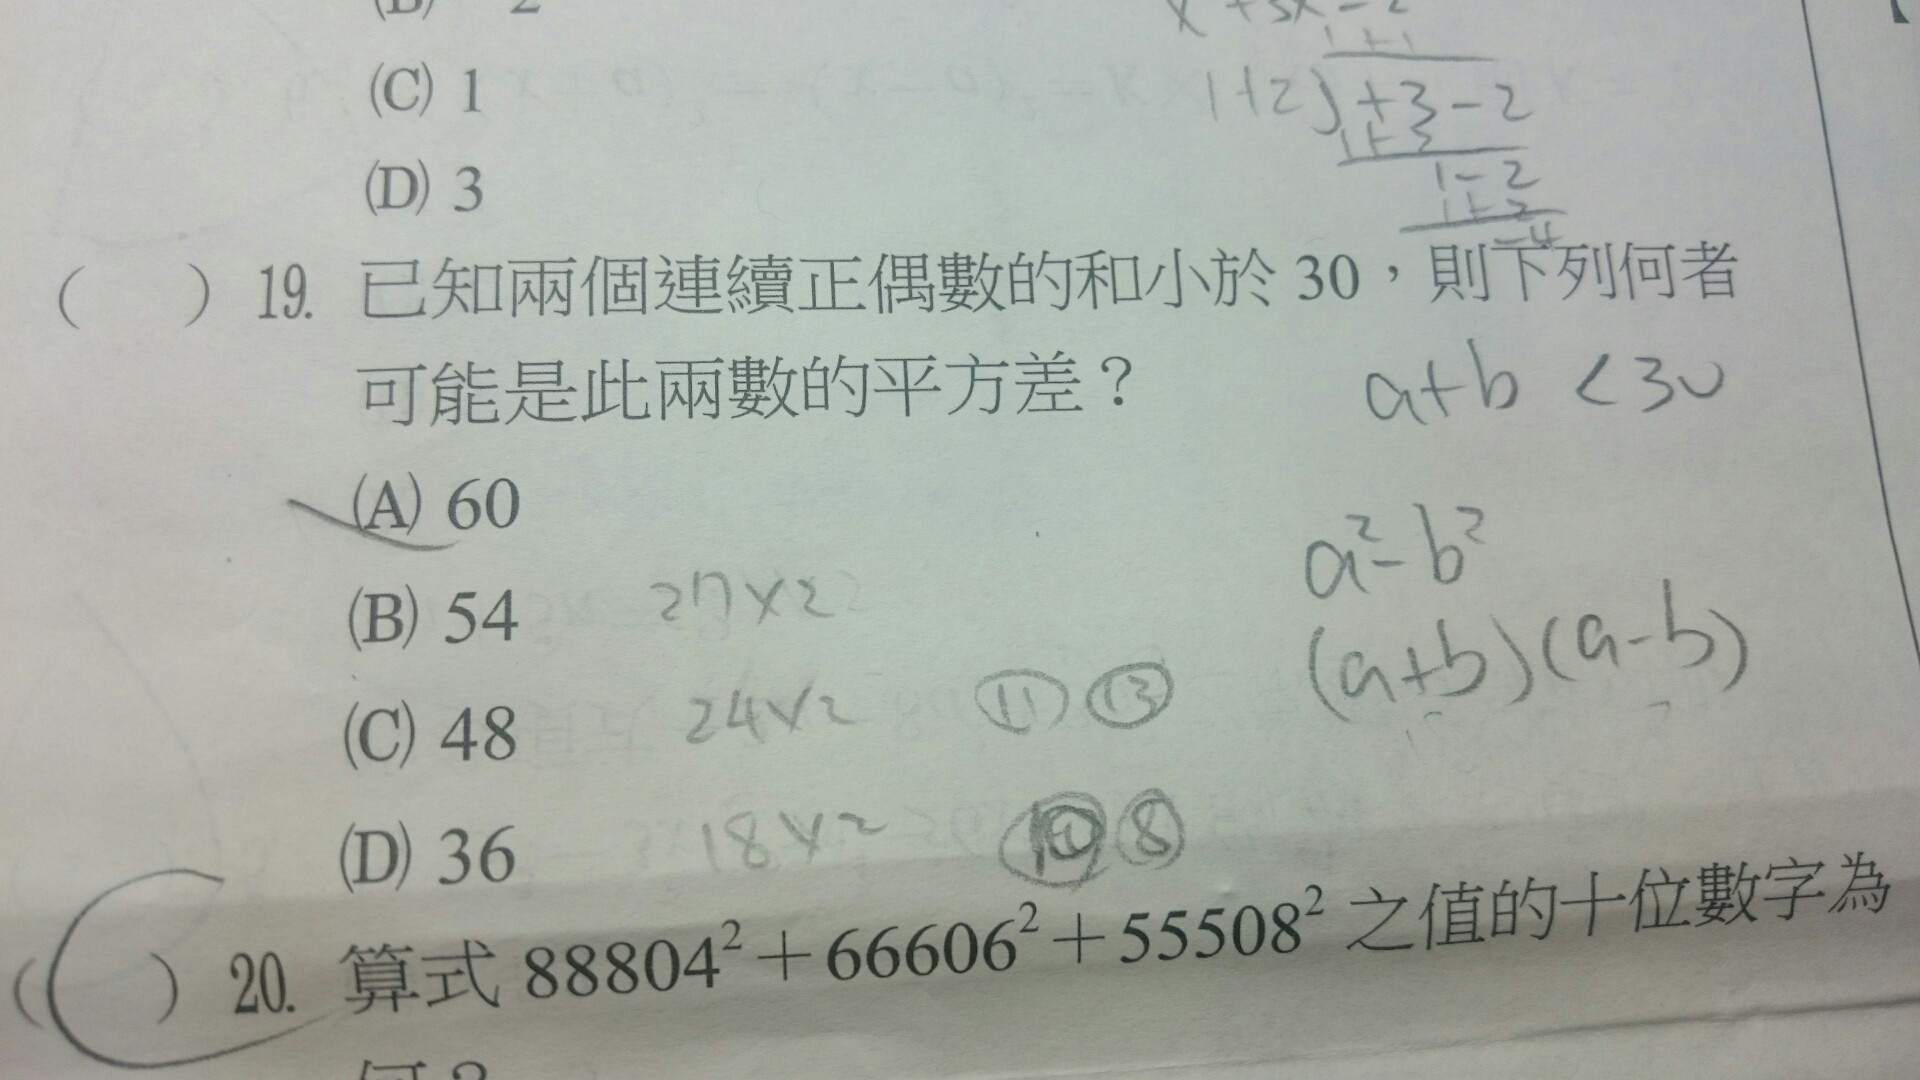 (C) 1
(D) 3
1+2)1+3-2
1+1
1-2
-4
( ) 19. 已知兩個連續正偶數的和小於 30，則下列何者
可能是此兩數的平方差？
a+b <30
(A) 60
a²-b²
(B) 54 27×2
(a+b)(a-b)
(C) 48 24×2 11 13
(D) 36 18×2 10 8
( ) 20. 算式 88804²＋66606²＋55508² 之值的十位數字為
何？